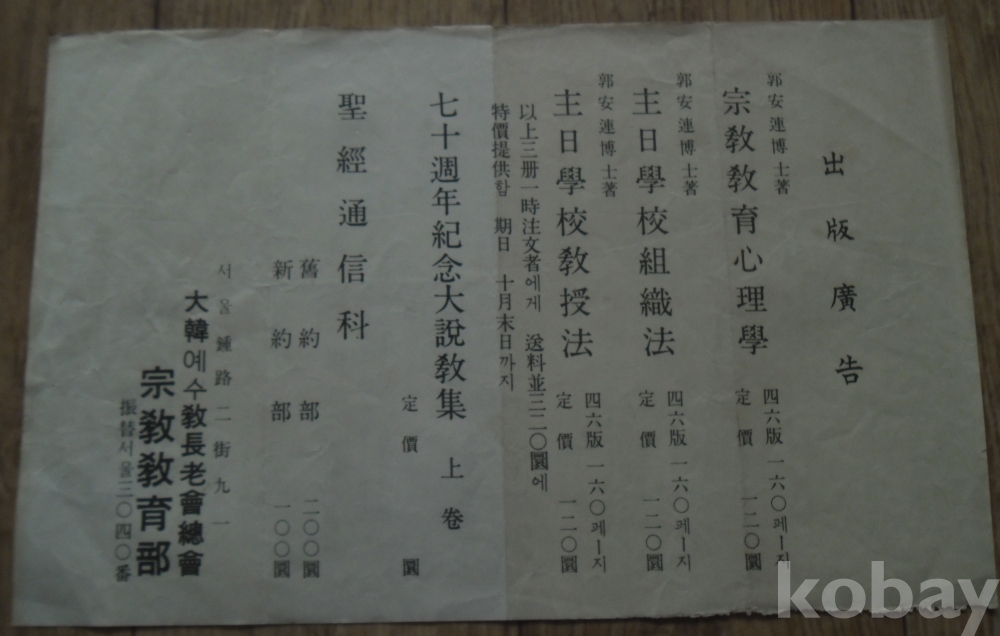 出版廣告
郭安連博士著
宗敎敎育心理學
四六版 一六○페ー지
定價 一二○圜
郭安連博士著
主日學校組織法
四六版 一六○페ー지
定價 一二○圜
郭安連博士著
主日學校敎授法
四六版 一六○페ー지
定價 一二○圜
以上三册一時注文者에게 送料並三二○圜에
特價提供함 期日 十月末日까지
七十週年紀念大說敎集 上卷
定價 圜
聖經通信科
舊約部 二○○圜
新約部 一○○圜
서울鍾路二街九一
大韓예수敎長老會總會
宗敎敎育部
振替서울三○四○番
kobay